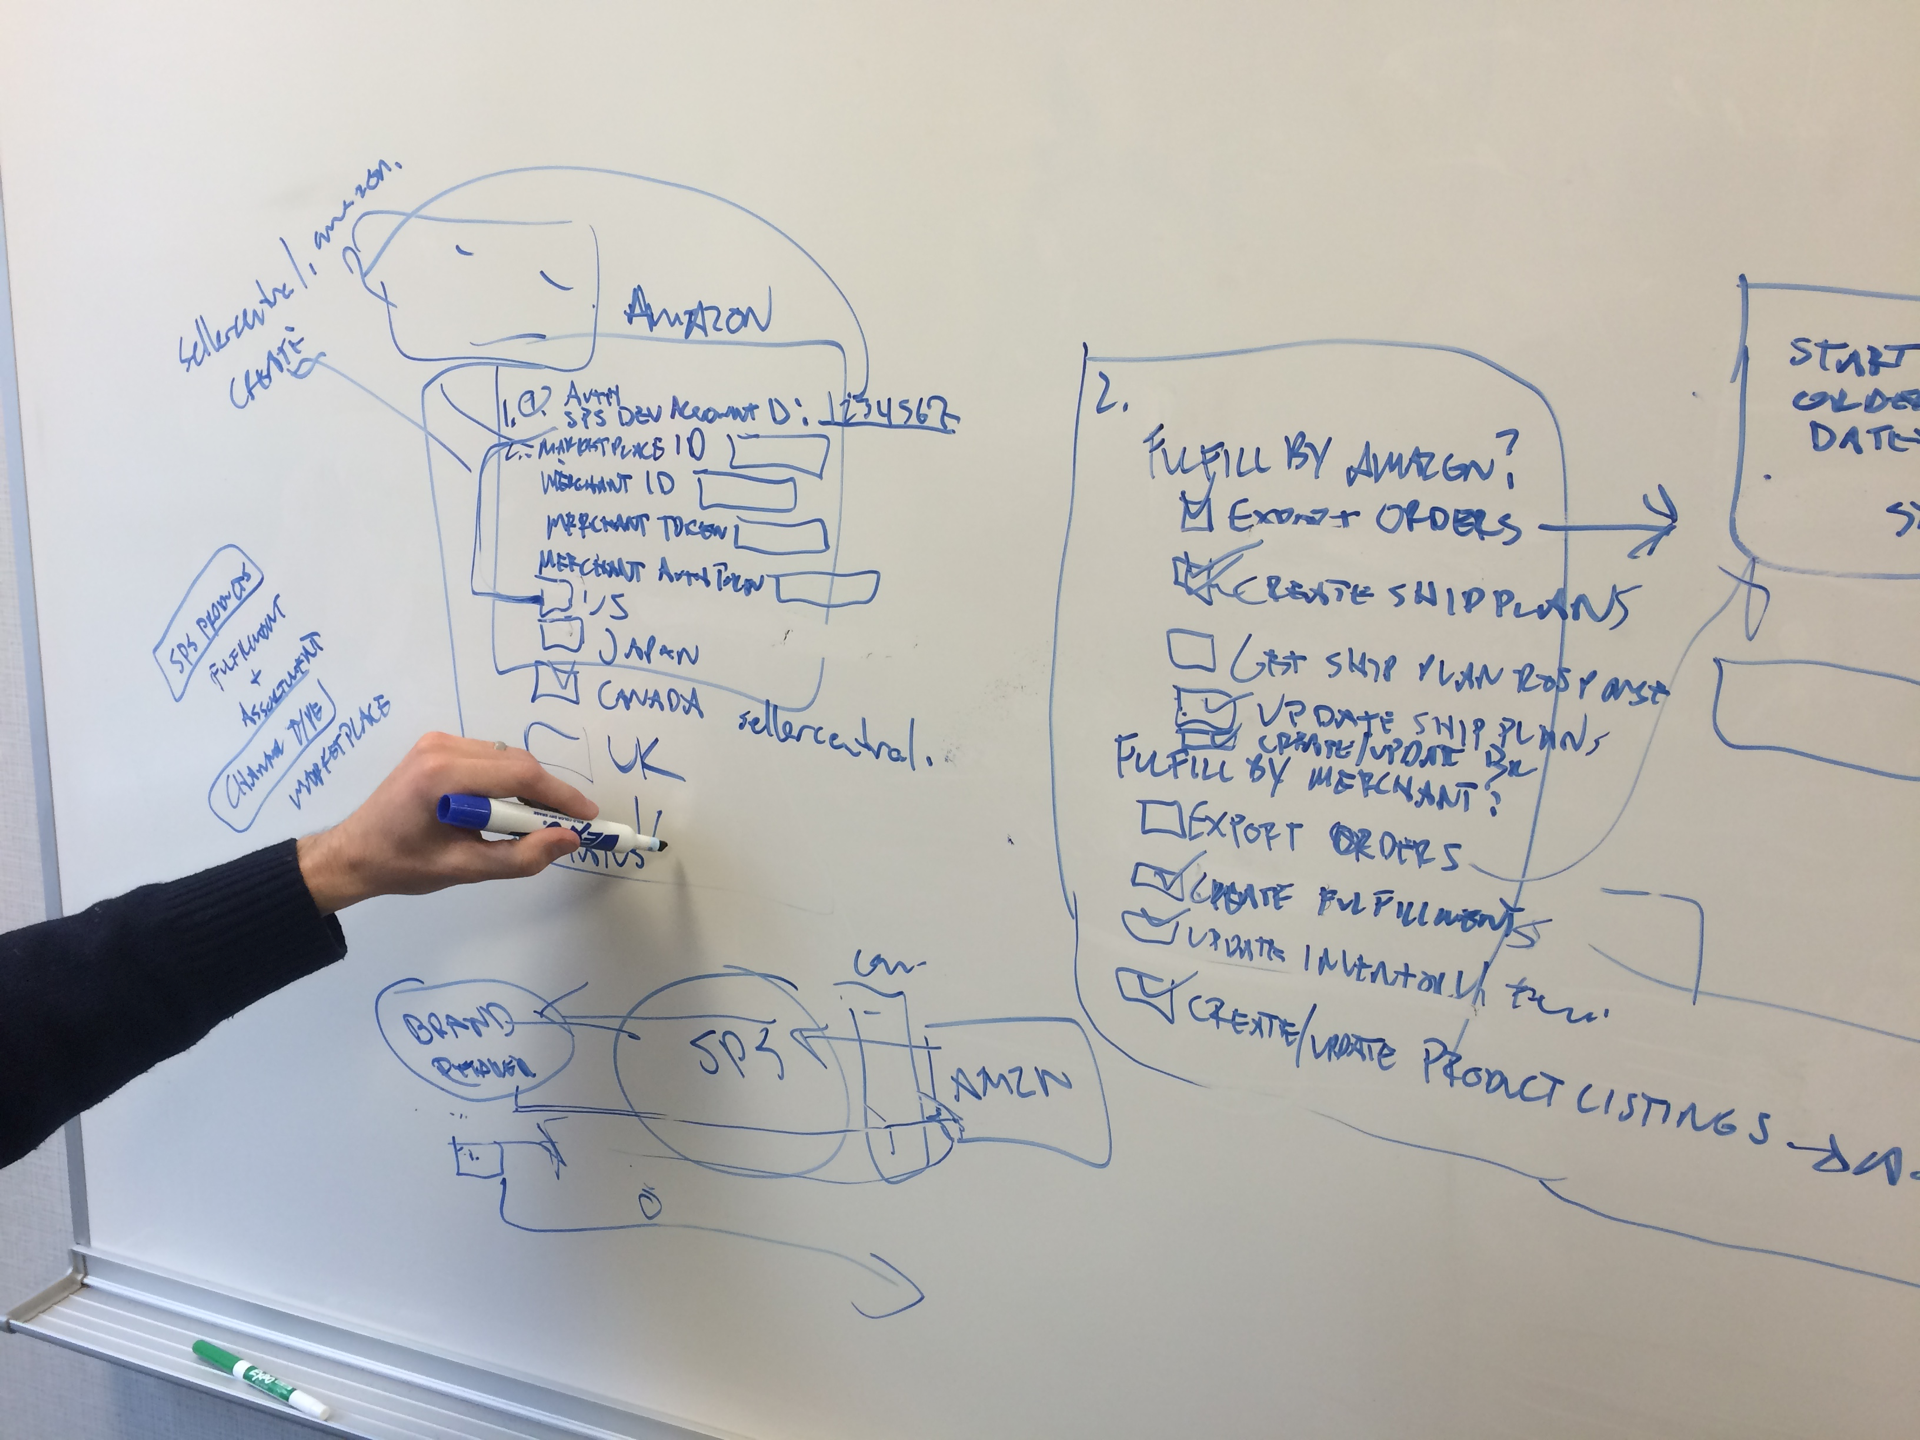 sellercentral. amazon.
CREATE
AMAZON
1. Auth
SPS DEV Account ID: 1234567
2. MARKETPLACE ID
MERCHANT ID
MERCHANT TOKEN
MERCHANT Auth Token
US
JAPAN
CANADA
UK
sellercentral.
SPS PRODUCTS
FULFILLMENT
+
ASSORTMENT
CHANNEL
MARKETPLACE
EXPO
BRAND
SPS
AMZN
2.
FULFILL BY AMAZON?
Export ORDERS
CREATE SHIP PLANS
Get SHIP PLAN RESPONSE
UPDATE SHIP PLANS
CREATE/UPDATE
FULFILL BY MERCHANT?
EXPORT ORDERS
CREATE FULFILLMENTS
UPDATE INVENTORY
CREATE/UPDATE PRODUCT LISTINGS
START
ORDER
DATE